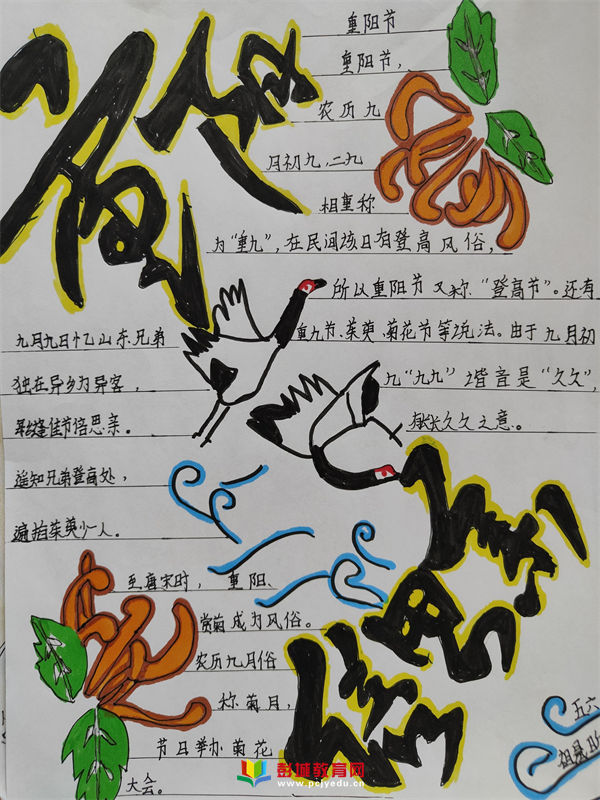 重阳
重阳节
重阳节，
农历九
月初九，二九
相重称
为“重九”，在民间该日有登高风俗，
所以重阳节又称“登高节”。还有
重九节、茱萸、菊花节等说法。由于九月初
九“九九”谐音是“久久”，
有长久久之意。
九月九日忆山东兄弟
独在异乡为异客，
每逢佳节倍思亲。
遥知兄弟登高处，
遍插茱萸少一人。
至唐宋时，重阳、
赏菊成为风俗。
农历九月俗
称菊月，
节日举办菊花
大会。
五六
彭城教育网
www.pcjyedu.cn